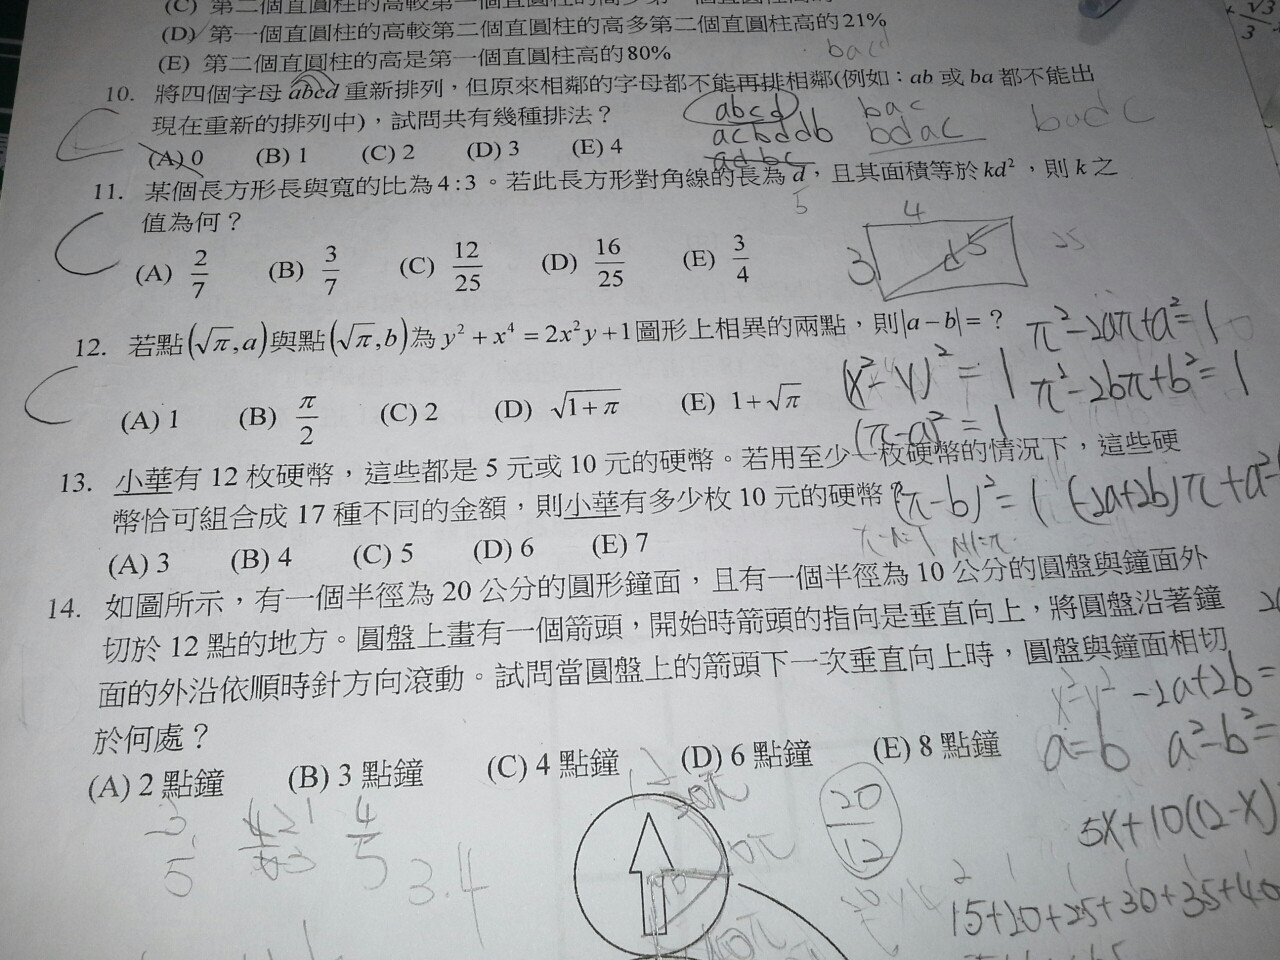 (C) 第二個直圓柱的高較第一個直圓柱的高多第一個直圓柱高的
(D) 第一個直圓柱的高較第二個直圓柱的高多第二個直圓柱高的 21%
(E) 第二個直圓柱的高是第一個直圓柱高的 80%
bac
10. 將四個字母 abcd 重新排列，但原來相鄰的字母都不能再排相鄰(例如：ab 或 ba 都不能出
現在重新的排列中)，試問共有幾種排法？
(A) 0 (B) 1 (C) 2 (D) 3 (E) 4
C
abcd
acbddb
adbc
bac
bdac
badc
11. 某個長方形長與寬的比為 4 : 3。若此長方形對角線的長為 d，且其面積等於 kd²，則 k 之
值為何？
(A) 2/7 (B) 3/7 (C) 12/25 (D) 16/25 (E) 3/4
C
5
4
3
d 5
25
12. 若點(√π, a)與點(√π, b)為 y² + x⁴ = 2x²y + 1 圖形上相異的兩點，則|a − b| = ？
(A) 1 (B) π/2 (C) 2 (D) √(1+π) (E) 1+√π
C
(x²−y)² = 1
(π−a)² = 1
(π−b)² = 1
π²−2aπ+a² = 1
π²−2bπ+b² = 1
(−2a+2b)π+a²−
13. 小華有 12 枚硬幣，這些都是 5 元或 10 元的硬幣。若用至少一枚硬幣的情況下，這些硬
幣恰可組合成 17 種不同的金額，則小華有多少枚 10 元的硬幣？
(A) 3 (B) 4 (C) 5 (D) 6 (E) 7
14. 如圖所示，有一個半徑為 20 公分的圓形鐘面，且有一個半徑為 10 公分的圓盤與鐘面外
切於 12 點的地方。圓盤上畫有一個箭頭，開始時箭頭的指向是垂直向上，將圓盤沿著鐘
面的外沿依順時針方向滾動。試問當圓盤上的箭頭下一次垂直向上時，圓盤與鐘面相切
於何處？
(A) 2 點鐘 (B) 3 點鐘 (C) 4 點鐘 (D) 6 點鐘 (E) 8 點鐘
−2a+2b=
a=b a²−b²=
5x+10(12−x)
15+20+25+30+35+40
20/12
4/5
3.4